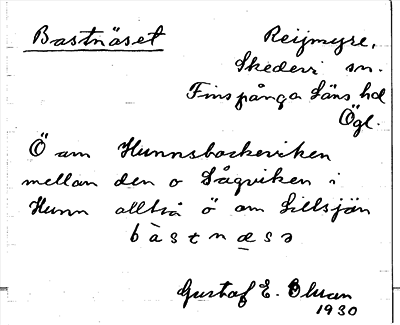 Bastnäset
Reijmyre,
Skedevi sn.
Finspånga Läns hd
Ögl.
Ö am Hunnsbackeviken
mellan den o Sågviken i
Hunn alltså ö am Lillsjön
bàstnæsə
Gustaf E.
1930